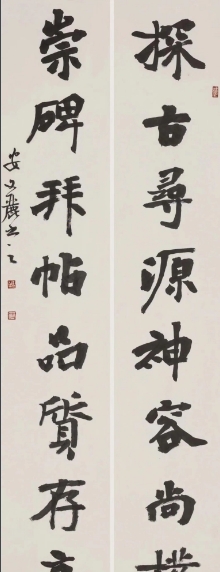 探古尋源神容尚
崇碑拜帖品質存